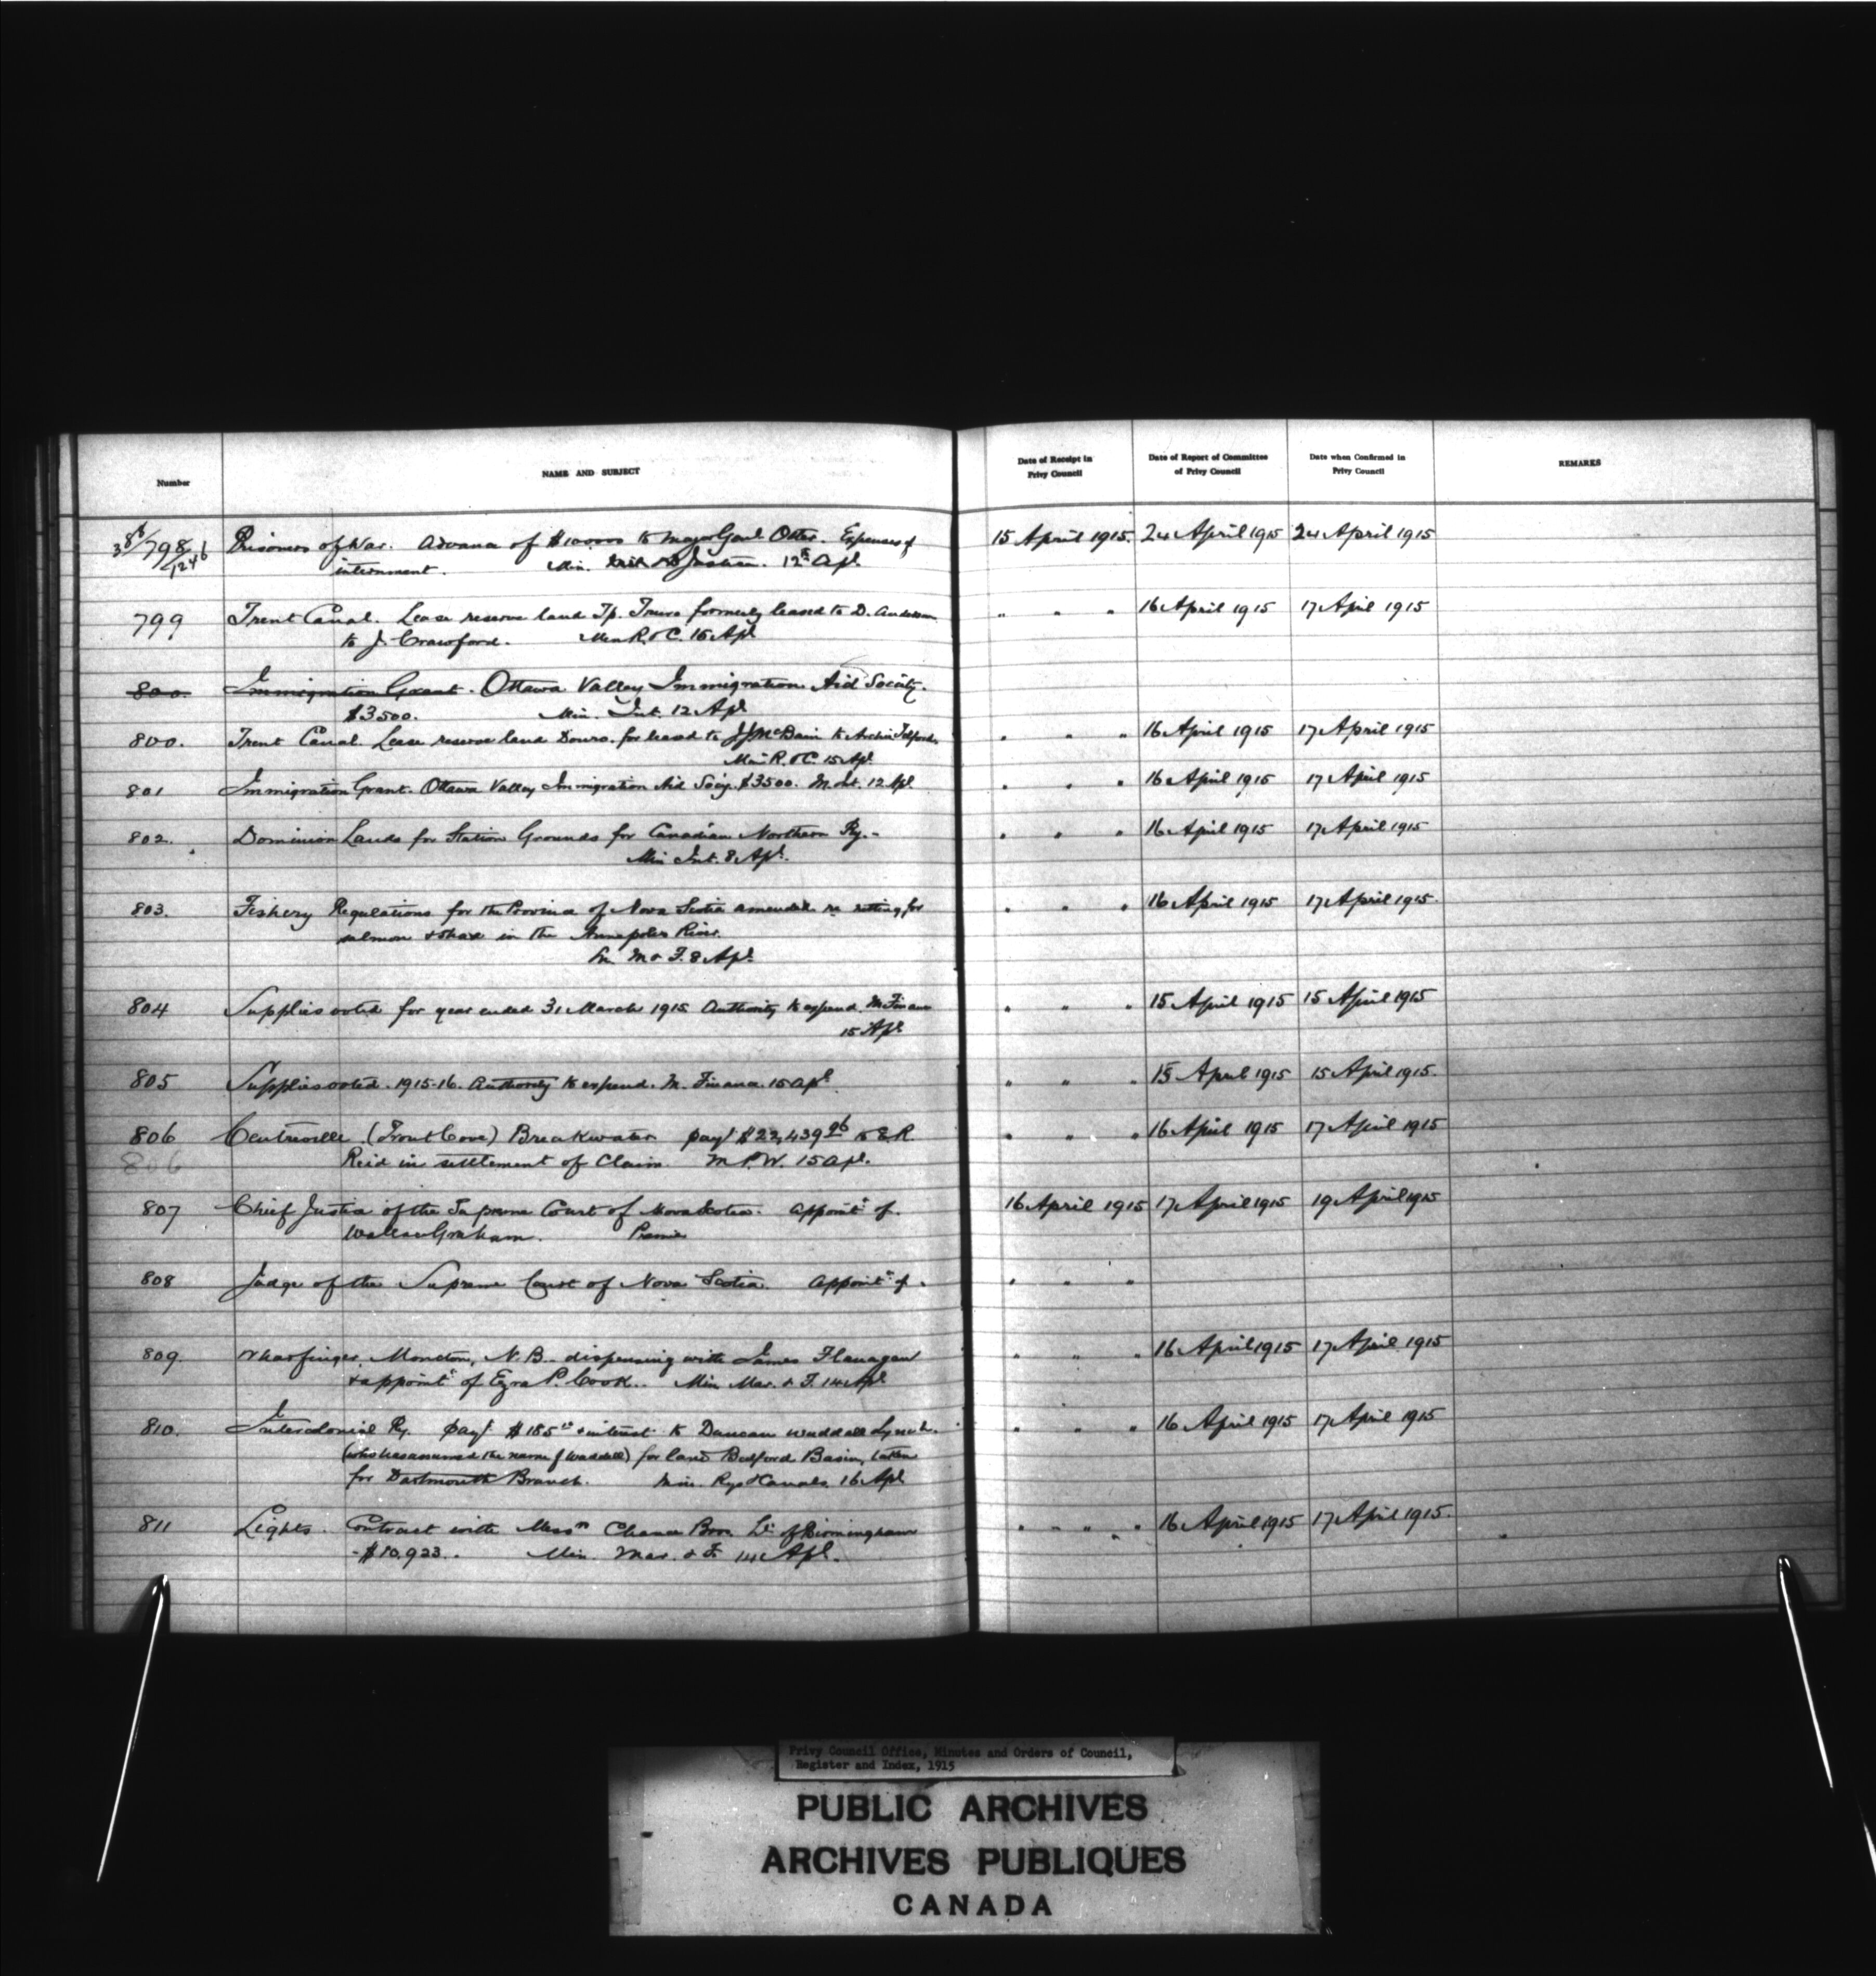 Number
NAME AND SUBJECT
Date of Receipt in Privy Council
Date of Report of Committee of Privy Council
Date when Confirmed in Privy Council
REMARKS
798 Prisoners of War. Advance of to Major Genl Otter. Expenses of 15 April 1915. 24 April 1915 24 April 1915
1246 internment. Min. Justice. 12th Apl
799 Trent Canal. Lease reserve land Tp. formerly leased to D. Anderson " " " 16 April 1915 17 April 1915
to J. Crawford. Min R. & C. 15 Apl
800. Immigration Grant. Ottawa Valley Immigration Aid Society.
$3500. Min. Int. 12 Apl
800. Trent Canal. Lease reserve land Douro. for leased to J J McBain to Archie Telford. " " " 16 April 1915 17 April 1915
Min R. & C. 15 Apl.
801 Immigration Grant. Ottawa Valley Immigration Aid Socy. $3500. M. Int. 12 Apl. " " " 16 April 1915 17 April 1915
802. Dominion Lands for Station Grounds for Canadian Northern Ry.- " " " 16 April 1915 17 April 1915
Min Int. 8 Apl.
803. Fishery Regulations for the Province of Nova Scotia amended re netting for " " " 16 April 1915 17 April 1915.
salmon & shad in the Annapolis River.
M & F. 8 Apl.
804 Supplies voted for year ended 31 March 1915 Authority to expend. M Finance " " " 15 April 1915 15 April 1915
15 Apl.
805 Supplies voted. 1915-16. Authority to expend. M. Finance. 15 Apl. " " " 15 April 1915 15 April 1915.
806 Centreville (Trout Cove) Breakwater payt $22,439 96 to E.R. " " " 16 April 1915 17 April 1915
806 Reid in settlement of Claim. M.P.W. 15 Apl.
807 Chief Justice of the Supreme Court of Nova Scotia. Appointt of. 16 April 1915 17 April 1915 19 April 1915
Wallace Graham. Premier
808 Judge of the Supreme Court of Nova Scotia. Appointt of. " " "
809. Wharfinger, Moncton, N.B. dispensing with James Flanagan " " " 16 April 1915 17 April 1915
& appointt of Ezra P. Cook. Min Mar. & F. 14 Apl
810. Intercolonial Ry. payt & interest to Duncan Waddell Lynch. " " " 16 April 1915 17 April 1915
(who has assumed the name of Waddell) for land Bedford Basin, taken
for Dartmouth Branch. Min. Rys & Canals. 16 Apl
811 Lights. Contract with Messrs Chance Bros Ld. of Birmingham " " " 16 April 1915 17 April 1915.
-$10,923.. Min. Mar. & F. 14 Apl.
Privy Council Office, Minutes and Orders of Council,
Register and Index, 1915
PUBLIC ARCHIVES
ARCHIVES PUBLIQUES
CANADA